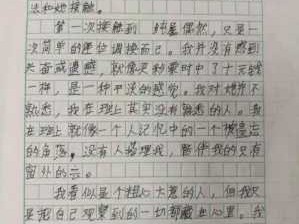 法和她接触。
第一次接触到 纯是偶然，只是一
次简单的座位调换而已。我并没有感到
失落或遗憾，就像买彩票时中了十元钱
一样，是一种平淡的感觉。我对她并不
熟悉，我在班上其实没有熟悉的人。我
在班上就像一个人记忆中的一个被遗忘
的角落，没有人搭理我，陪伴我的只有
窗外的云。
我看似是个粗心大意的人，但我只
是把自己观察到的一切都藏在心里。我